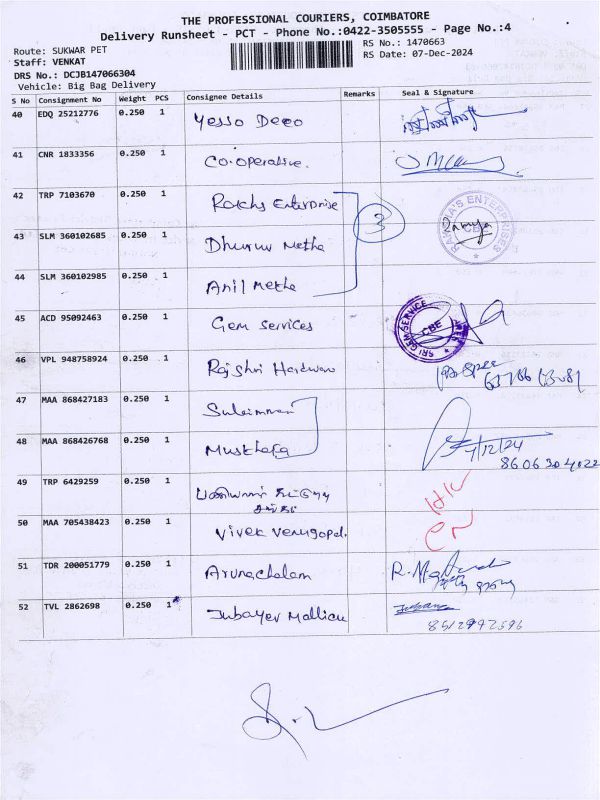 THE PROFESSIONAL COURIERS, COIMBATORE
Delivery Runsheet - PCT - Phone No.:0422-3505555 - Page No.:4
Route: SUKWAR PET
RS No.: 1470663
Staff: VENKAT
RS Date: 07-Dec-2024
DRS No.: DCJB147066304
Vehicle: Big Bag Delivery
S No Consignment No Weight PCS Consignee Details Remarks Seal & Signature
40 EDQ 25212776 0.250 1 Yesso Deeo
41 CNR 1833356 0.250 1 Co.operative.
42 TRP 7103670 0.250 1 Rakhs Enterprise
3
43 SLM 360102685 0.250 1 Dhuruv Metha
44 SLM 360102985 0.250 1 Anil Metha
45 ACD 95092463 0.250 1 Gem Services
SRI GEM SERVICE CBE
46 VPL 948758924 0.250 1 Rajshri Hardware
47 MAA 868427183 0.250 1 Suleimman
48 MAA 868426768 0.250 1 Musthafa
7/12/24
8606304022
49 TRP 6429259 0.250 1
50 MAA 705438423 0.250 1 Vivek Venugopal.
51 TDR 200051779 0.250 1 Arunachalam
52 TVL 2862698 0.250 1 Jubayer Mallick